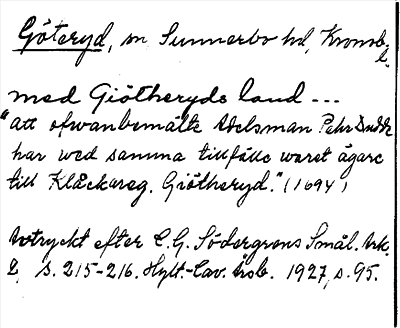 Göteryd, sn Sunnerbo hd, Kronob.
l.
med Giötheryds land ---
"att ofwanbemälte Adelsman Pehr
har wed samma tillfälle waret ägare
till Klåckareg. Giötheryd." (1694)
Avtryckt efter C. G. Södergrens Smål. Urk.
2, s. 215-216. Hylt.-Cav. Årsb. 1927, s. 95.